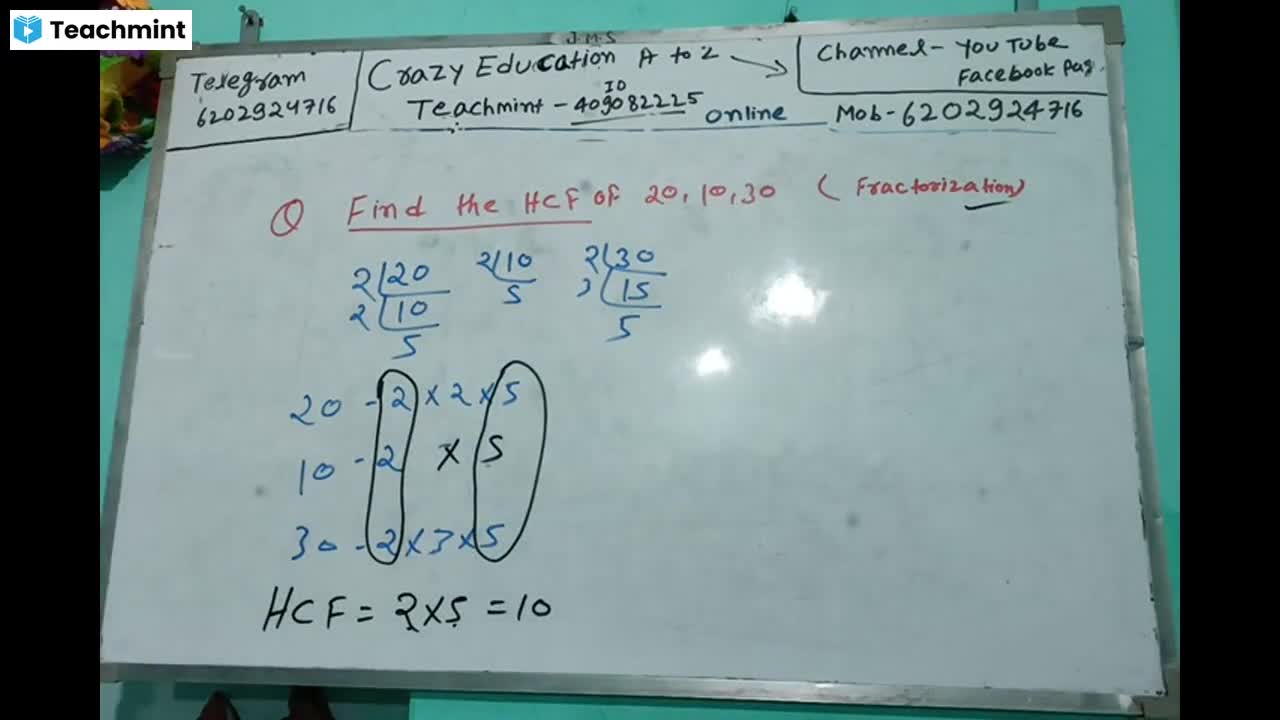 Teachmint
J.M.S
Telegram
6202924716
Crazy Education A to Z
ID
Teachmint - 409082225 online
Channel - YouTube
Facebook Pag.
Mob - 6202924716
Q Find the HCF of 20, 10, 30 (Fractorization)
2 20 2 10 2 30
2 10 5 3 15
5 5
20 - 2 × 2 × 5
10 - 2 × 5
30 - 2 × 3 × 5
HCF = 2 × 5 = 10